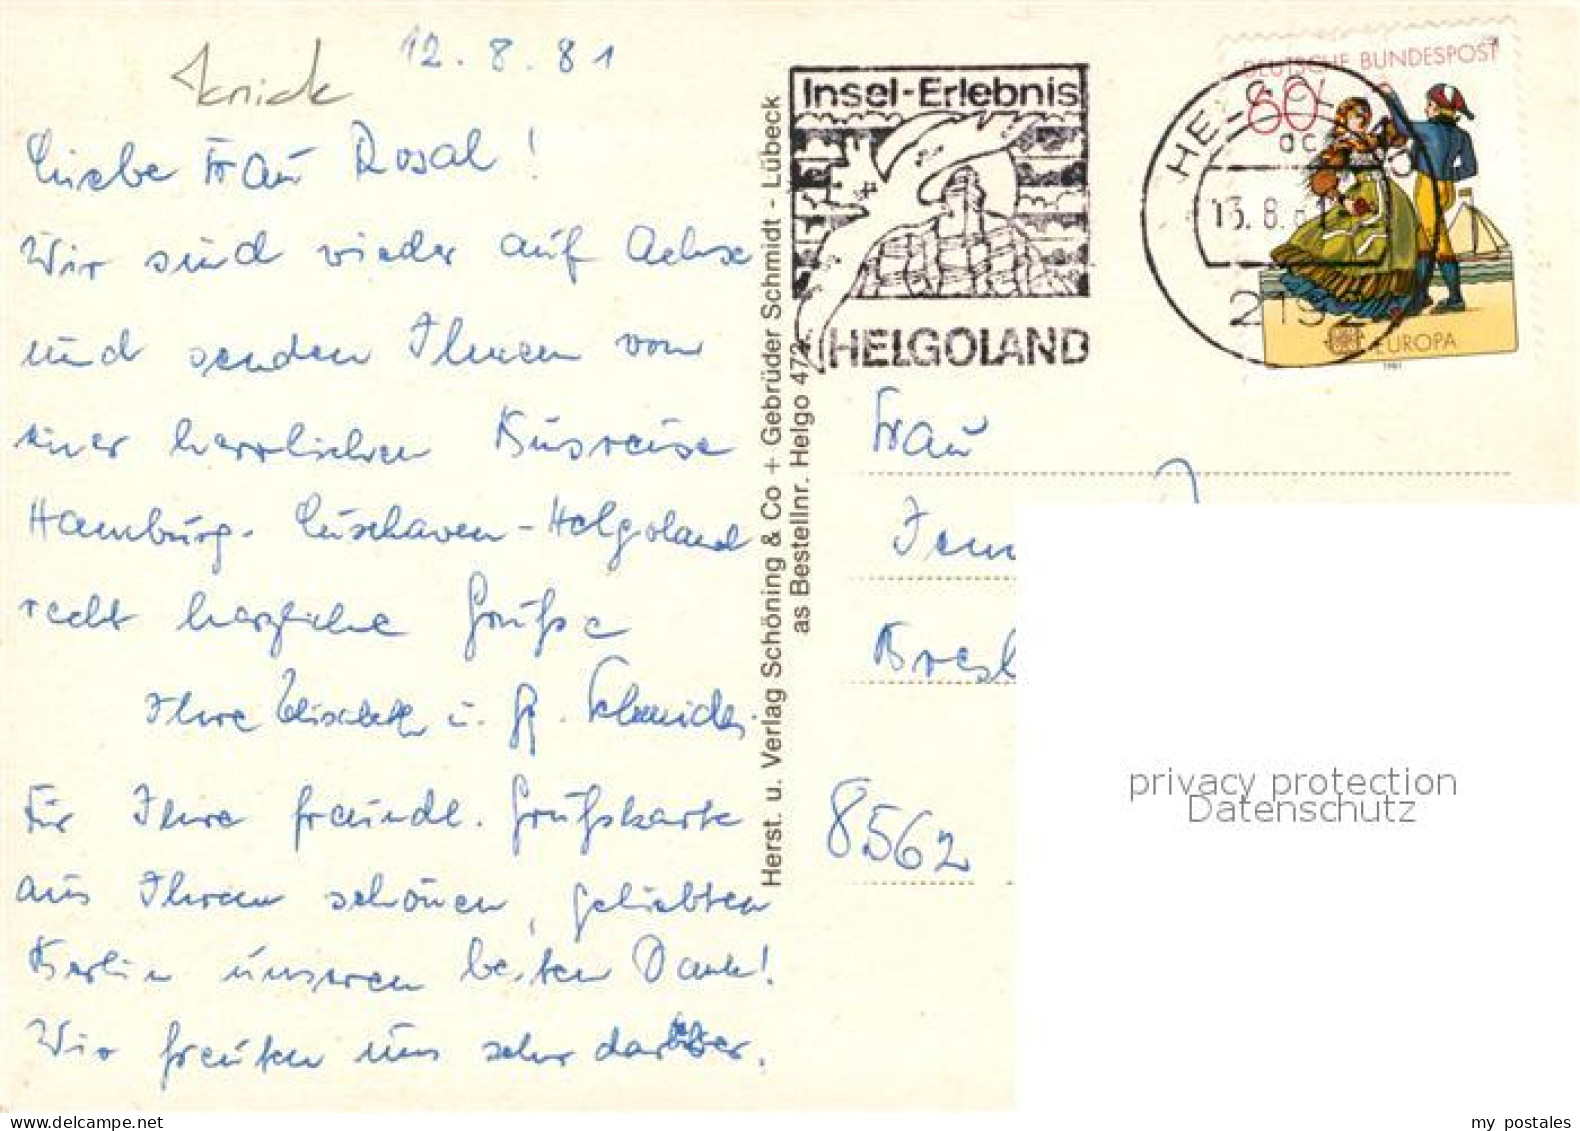 knick
12.8.81
Liebe Frau Rosal!
Wir sind wieder auf Achse
und senden Ihnen von
einer herrlichen Busreise
Hamburg-Cuxhaven-Helgoland
recht herzliche Grüße
Ihre Elisabeth u.
Für Ihre freundl. Grußkarte
aus Ihrem schönen, geliebten
Berlin unseren besten Dank!
Wir freuten uns sehr darüber.
Herst. u. Verlag Schöning & Co + Gebrüder Schmidt - Lübeck
as Bestellnr. Helgo 472
Insel-Erlebnis
HELGOLAND
DEUTSCHE BUNDESPOST
60
EUROPA
1981
HELGOLAND
13.8.81
2192
Frau
8562
privacy protection
Datenschutz
my postales